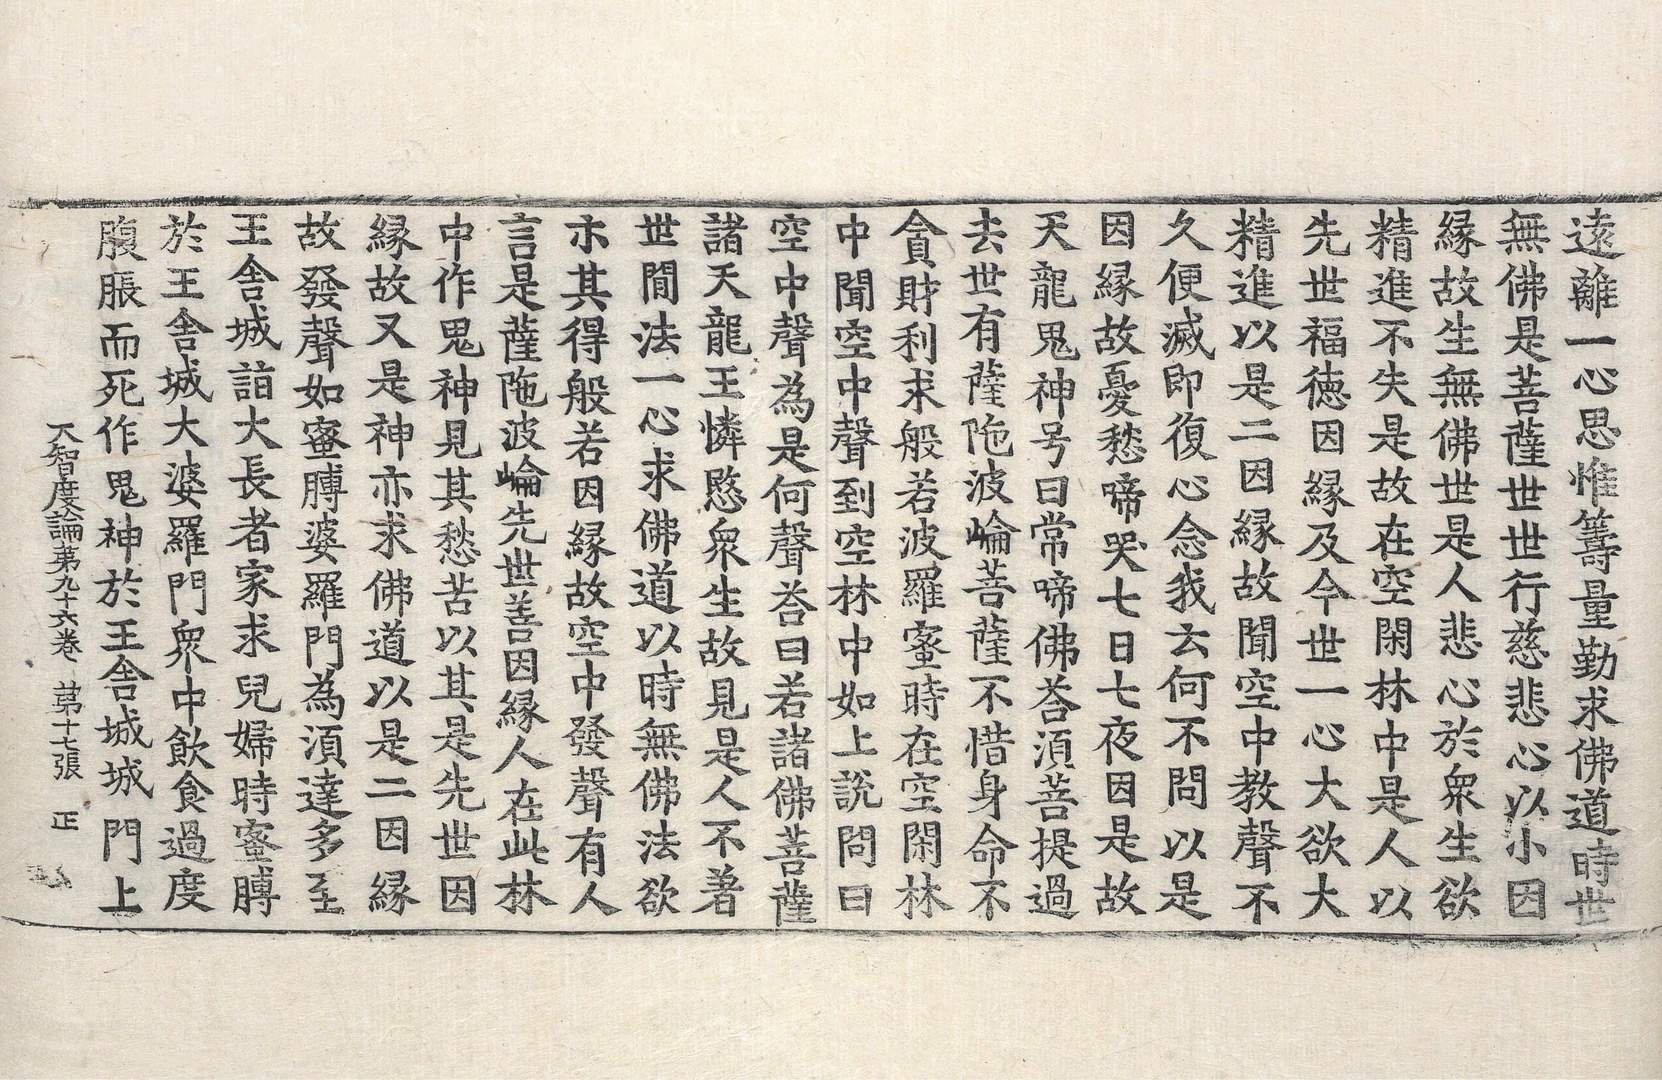 遠離一心思惟籌量勤求佛道時世
無佛是菩薩世世行慈悲心以小因
緣故生無佛世是人悲心於衆生欲
精進不失是故在空閑林中是人以
先世福德因緣及今世一心大欲大
精進以是二因緣故聞空中教聲不
久便滅即復心念我云何不問以是
因緣故憂愁啼哭七日七夜因是故
天龍鬼神号曰常啼佛荅湏菩提過
去世有薩陁波崘菩薩不惜身命不
貪財利求般若波羅蜜時在空閑林
中聞空中聲到空林中如上說問曰
空中聲為是何聲荅曰若諸佛菩薩
諸天龍王憐愍衆生故見是人不著
世間法一心求佛道以時無佛法欲
示其得般若因緣故空中發聲有人
言是薩陁波崘先世善因緣人在此林
中作鬼神見其愁苦以其是先世因
緣故又是神亦求佛道以是二因緣
故發聲如蜜膊婆羅門為湏達多至
王舍城詣大長者家求兒婦時蜜膊
於王舍城大婆羅門衆中飲食過度
腹脹而死作鬼神於王舍城城門上
大智度論第九十六卷 第十七張 正